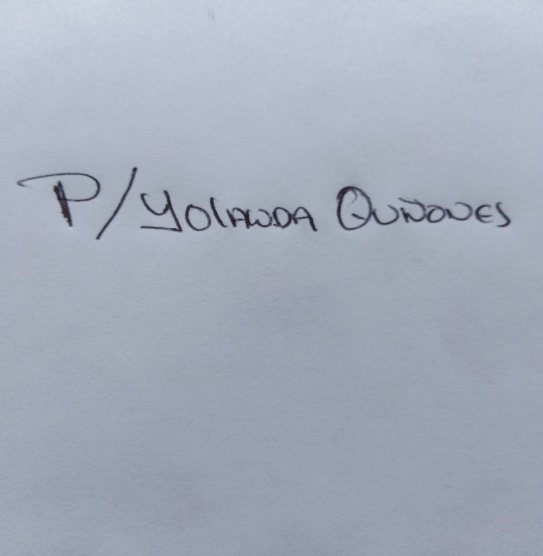 P/Yolanda Quiñones